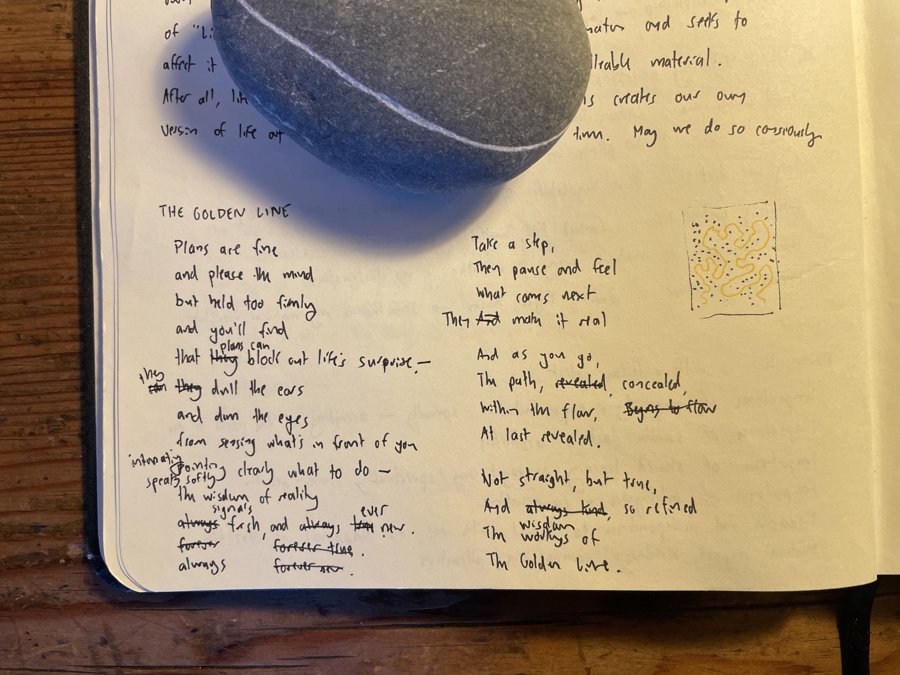 of "li
matter and seeks to
affect it
lleable material.
After all, life
is creates our own
version of life out
time. May we do so consciously
THE GOLDEN LINE
Plans are fine
and please the mind
but held too firmly
and you'll find
plans can
that they block out life's surprise –
they
can they dull the ears
and dim the eyes
from sensing what's in front of you
pointing clearly what to do –
speaks softly
the wisdom of reality
signals ever
always fresh, and always true new.
forever forever true.
always forever new.
Take a step,
Then pause and feel
What comes next
Then And make it real
And as you go,
The path, revealed, concealed,
Within the flow, Begins to flow
At last revealed.
Not straight, but true,
And always kind, so refined
wisdom
The workings of
The Golden Line.